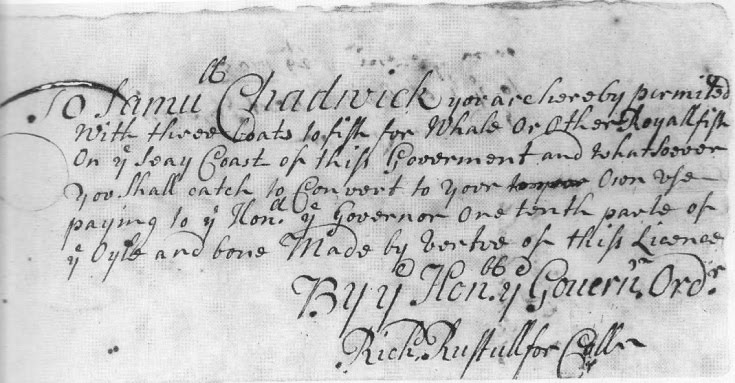 To Samu:ll Chadwick you are hereby permited
With three boats to fish for Whale Or Other Royall fish
On ye Seay Coast of this Goverment and whatsoever
you Shall catch to Convert to your Own Vse
paying to ye Hon:ll ye Governor One tenth parte of
ye Oyle and bone Made by Vertve of this Licence
By ye Hon:ble ye Govern:rs Ord:r
Rich: Rustull for